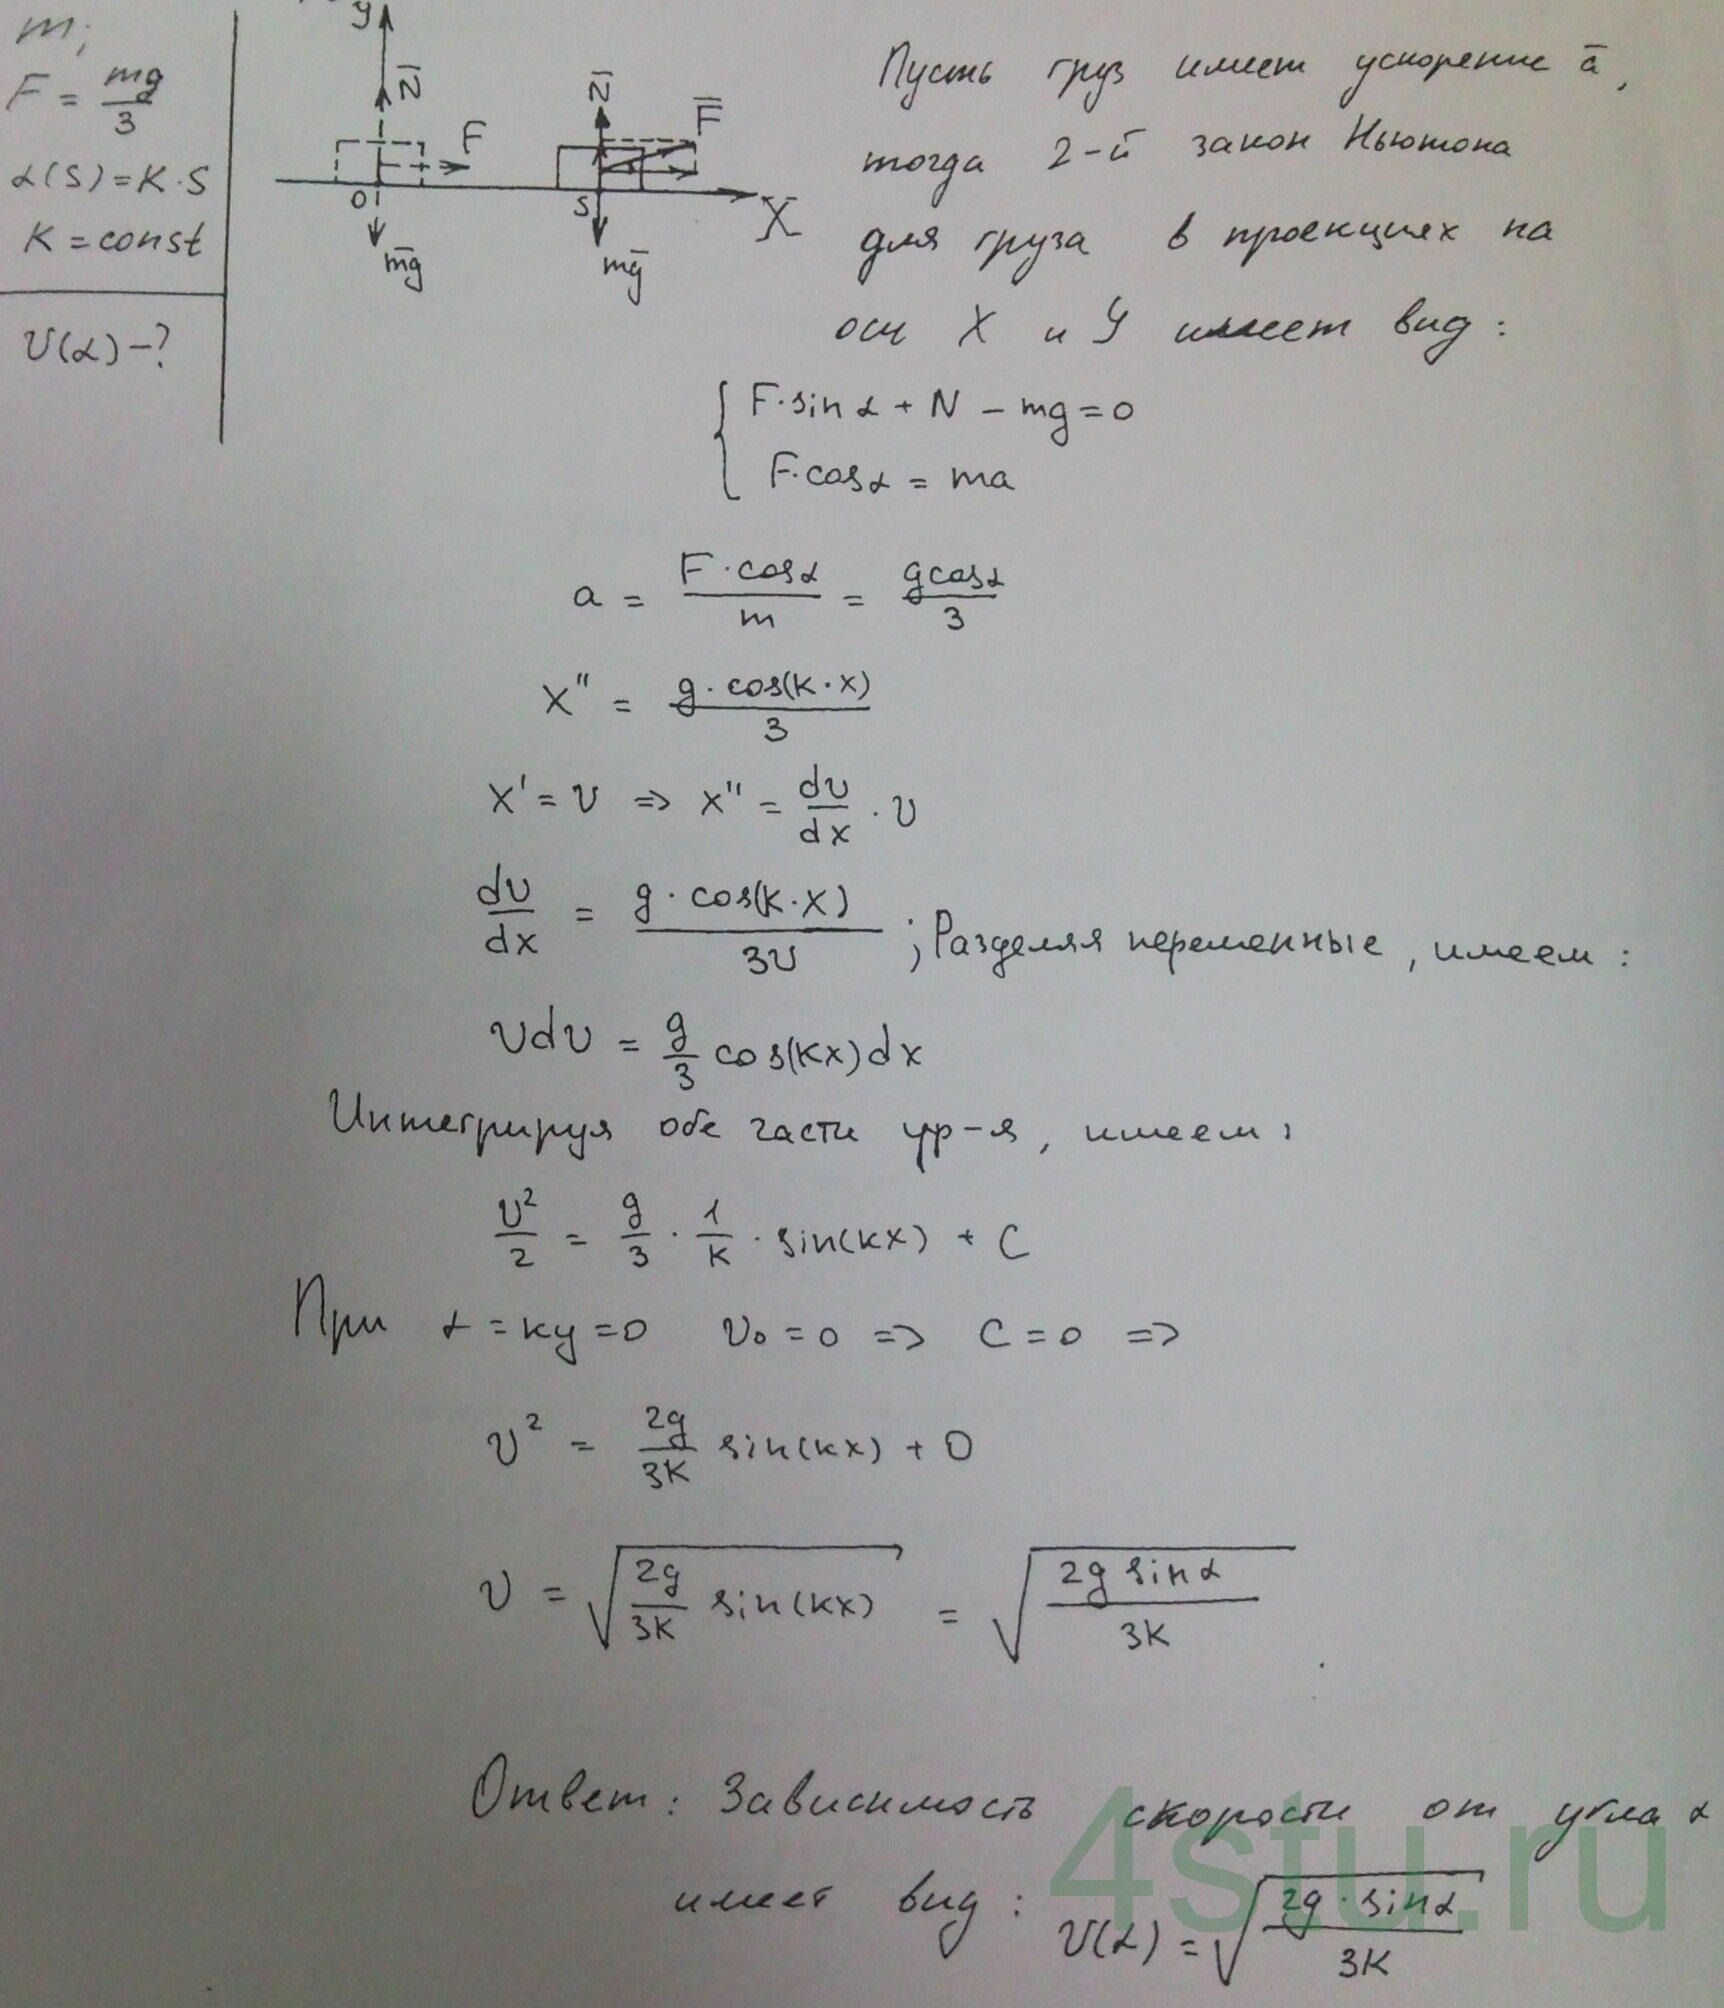 m;
F = mg/3
α(s) = K·s
K = const
υ(α) - ?
y
N̄
N̄
F
F̄
0
s
X
m̄g
m̄g
Пусть груз имеет ускорение ā,
тогда 2-й закон Ньютона
для груза в проекциях на
оси X и У имеет вид:
F·sinα + N - mg = 0
F·cosα = ma
a = F·cosα/m = gcosα/3
x'' = g·cos(K·x)/3
x' = υ => x'' = dυ/dx · υ
dυ/dx = g·cos(K·x)/3υ ; Разделяя переменные, имеем:
υdυ = g/3 cos(Kx)dx
Интегрируя обе части ур-я, имеем:
υ²/2 = g/3 · 1/K · sin(Kx) + C
При α = Ky = 0 υ₀ = 0 => C = 0 =>
υ² = 2g/3K sin(Kx) + 0
υ = √(2g/3K sin(Kx)) = √(2g sinα/3K)
Ответ: Зависимость скорости от угла α
имеет вид: υ(α) = √(2g·sinα/3K)
4stu.ru